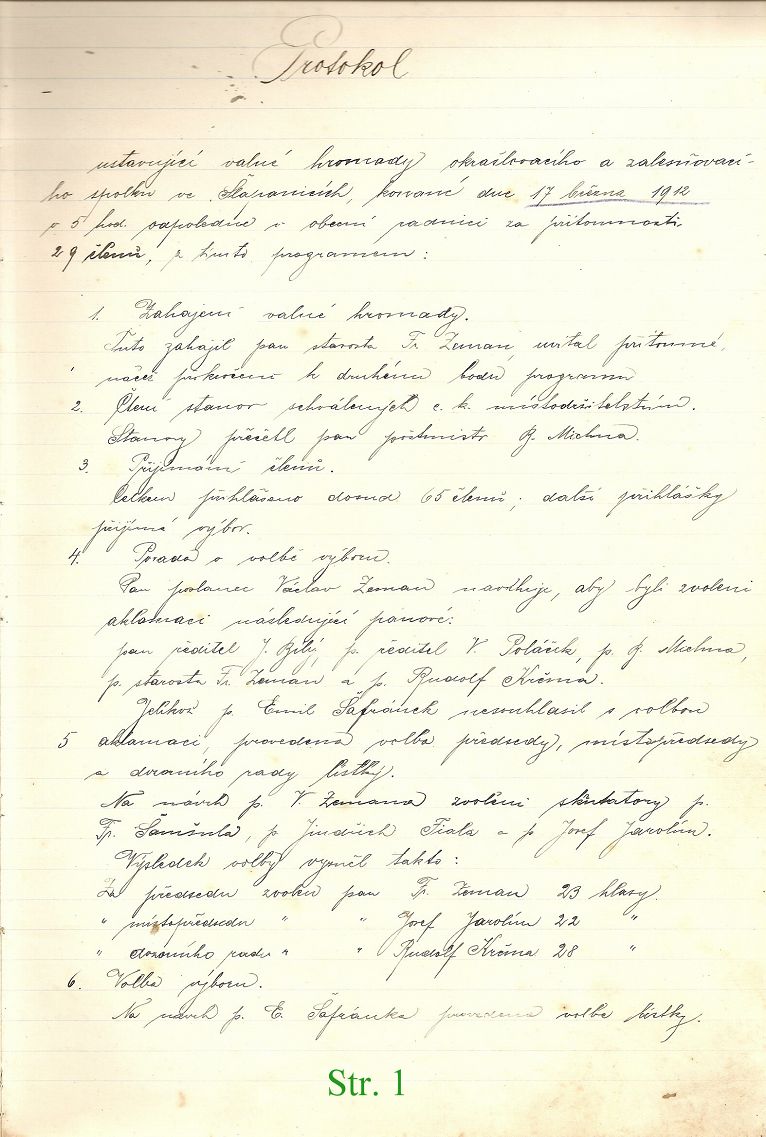 Protokol
ustavující valné hromady okrašlovacího a zalesňovací-
ho spolku ve Šlapanicích, konané dne 17 března 1912
v 5 hod. odpoledne v obecní radnici za přítomnosti
29 členů, z tímto programem:
1. Zahájení valné hromady.
Tuto zahájil pan starosta Fr. Zeman, uvítal přítomné,
načež přikročeno k druhému bodu programu
2. Čtení stanov schválených c. k. místodržitelstvím.
Stanovy přečetl pan poštmistr R. Michna.
3. Přijímání členů.
Celkem přihlášeno dosud 65 členů; další přihlášky
přijímá výbor.
4. Porada o volbě výboru.
Pan poslanec Václav Zeman navrhuje, aby byli zvoleni
aklamací následující pánové:
pan ředitel J. Bílý, p. ředitel V. Poláček, p. R. Michna,
p. starosta Fr. Zeman a p. Rudolf Krčma.
Jelikož p. Emil Šafránek nesouhlasil s volbou
5 aklamací, provedena volba předsedy, místopředsedy
a dozorního rady lístky.
Na návrh p. V. Zemana zvoleni skrutatory p.
Fr. p. Jindřich Fiala a p Josef Jarolím.
Výsledek volby vyzněl takto:
Za předsedu zvolen pan Fr. Zeman 23 hlasy.
" místopředsedu " " Josef Jarolím 22 "
" dozorního radu " " Rudolf Krčma 28 "
6. Volba výboru.
Na návrh p. E. Šafránka provedena volba lístky.
Str. 1